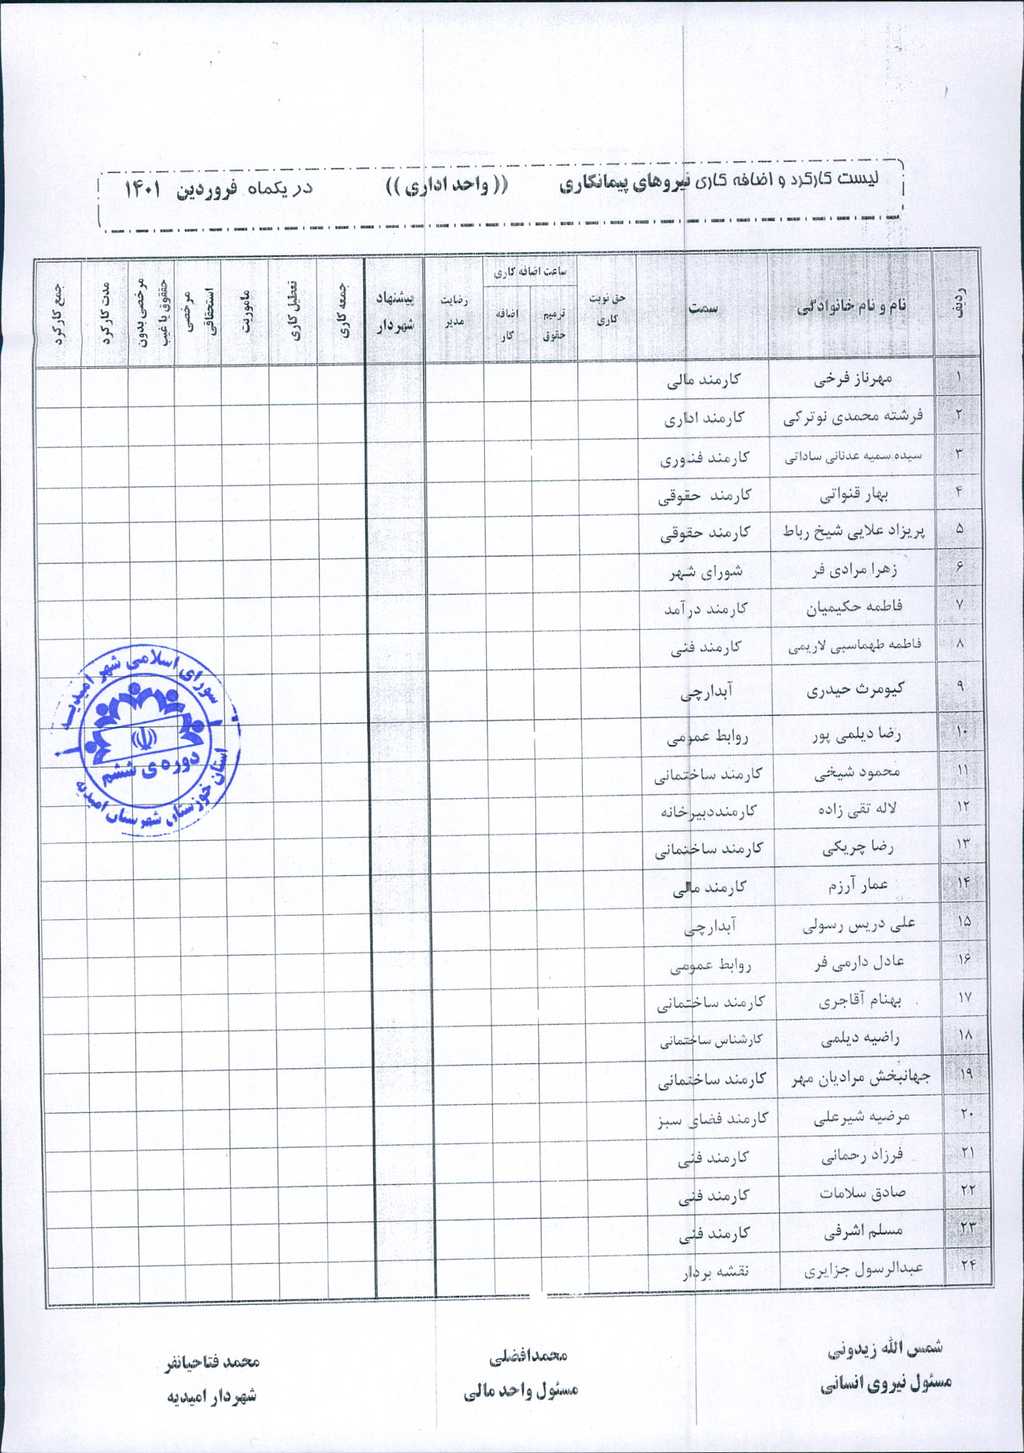 لیست کارکرد و اضافه کاری نیروهای پیمانکاری (( واحد اداری )) در یکماه فروردین ۱۴۰۱
ردیف نام و نام خانوادگی سمت حق نوبت کاری ساعت اضافه کاری ترمیم حقوق اضافه کار رضایت مدیر پیشنهاد شهردار جمعه کاری تعطیل کاری ماموریت مرخصی استحقاقی مرخصی بدون حقوق یا غیب مدت کارکرد جمع کارکرد
۱ مهرناز فرخی کارمند مالی
۲ فرشته محمدی نوترکی کارمند اداری
۳ سیده سمیه عدنانی ساداتی کارمند فناوری
۴ بهار قنواتی کارمند حقوقی
۵ پریزاد علایی شیخ رباط کارمند حقوقی
۶ زهرا مرادی فر شورای شهر
۷ فاطمه حکیمیان کارمند درآمد
۸ فاطمه طهماسبی لاریمی کارمند فنی
۹ کیومرث حیدری آبدارچی
۱۰ رضا دیلمی پور روابط عمومی
۱۱ محمود شیخی کارمند ساختمانی
۱۲ لاله تقی زاده کارمنددبیرخانه
۱۳ رضا چریکی کارمند ساختمانی
۱۴ عمار آرزم کارمند مالی
۱۵ علی دریس رسولی آبدارچی
۱۶ عادل دارمی فر روابط عمومی
۱۷ بهنام آقاجری کارمند ساختمانی
۱۸ راضیه دیلمی کارشناس ساختمانی
۱۹ جهانبخش مرادیان مهر کارمند ساختمانی
۲۰ مرضیه شیرعلی کارمند فضای سبز
۲۱ فرزاد رحمانی کارمند فنی
۲۲ صادق سلامات کارمند فنی
۲۳ مسلم اشرفی کارمند فنی
۲۴ عبدالرسول جزایری نقشه بردار
شورای اسلامی شهر امیدیه
دوره ی ششم
استان خوزستان شهرستان امیدیه
شمس الله زیدونی محمدافضلی محمد فتاحیانفر
مسئول نیروی انسانی مسئول واحد مالی شهردار امیدیه